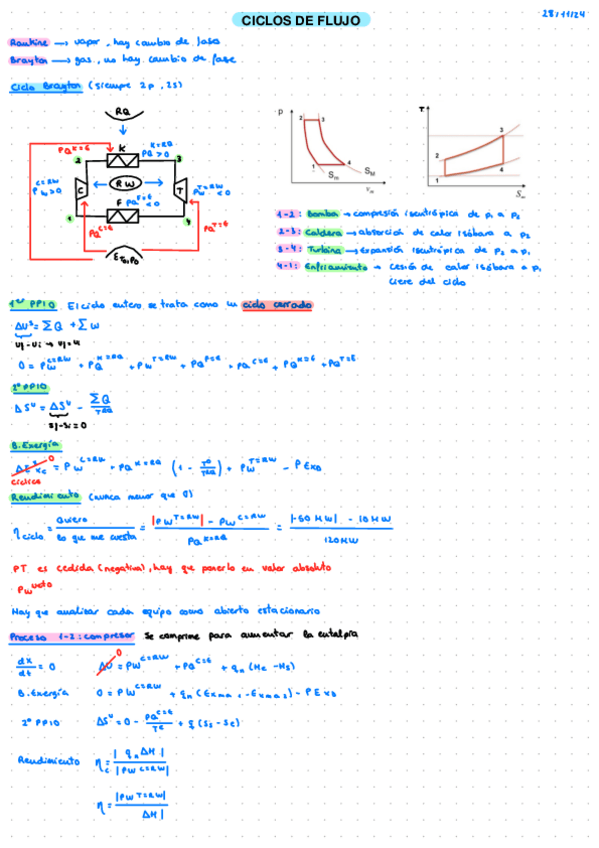 CICLOS DE FLUJO
28/11/24
Rankine → vapor, hay cambio de fase
Brayton → gas, no hay cambio de fase
Ciclo Brayton (siempre 2p, 2s)
RQ
K
2
3
PQ^K=E
PQ^K=RQ > 0
C
RW
T
Pw^C=RW > 0
Pw^T=RW < 0
1
4
F
PQ^F=E < 0
PQ^C=E
PQ^T=E
E T0,P0
p
2
3
1
4
Sm
SM
vm
T
3
2
4
1
Sm
1-2: Bomba → compresión isentrópica de p1 a p2
2-3: Caldera → absorción de calor isóbara a p2
3-4: Turbina → expansión isentrópica de p2 a p1
4-1: Enfriamiento → cesión de calor isóbara a p1
cierre del ciclo
1er PPIO El ciclo entero se trata como un ciclo cerrado
ΔU = ΣQ + ΣW
0 = Pw^C=RW + PQ^K=RQ + Pw^T=RW + PQ^F=E + PQ^C=E + PQ^K=E + PQ^T=E
2º PPIO
ΔS^U = ΔS^U - ΣQ/TRQ
sf-si=0
B. Exergía
0
= Pw^C=RW + PQ^K=RQ (1 - T0/TRQ) + Pw^T=RW - PExD
cíclico
Rendimiento (nunca menor que 0)
η ciclo = Quiero / lo que me cuesta = |Pw^T=RW| - Pw^C=RW / PQ^K=RQ = |-60 MW| - 10 MW / 120 MW
PT es cedida (negativa), hay que ponerlo en valor absoluto
Pw neto
Hay que analizar cada equipo como abierto estacionario
Proceso 1-2: compresor Se comprime para aumentar la entalpía
dx/dt = 0
0
ΔU = Pw^C=RW + PQ^C=E + qn (He - Hs)
B. Exergía 0 = Pw^C=RW + qn (Exma,e - Exma,s) - PExD
2º PPIO ΔS^U = 0 - PQ^C=E/TE + q (Ss - Se)
Rendimiento ηc = |qn ΔH| / |Pw C=RW|
η = |Pw T=RW| / ΔH|